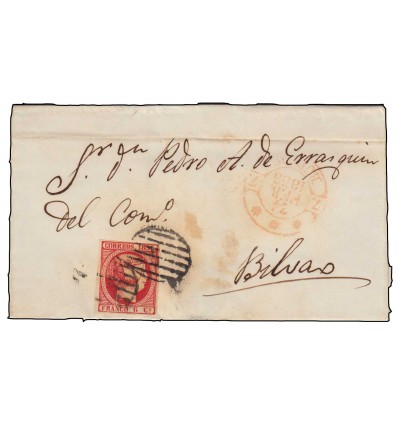 Sr. dn. Pedro A. de Errasquin
del Como.
Bilvao
CORREOS 185
FRANCO 6 Cs